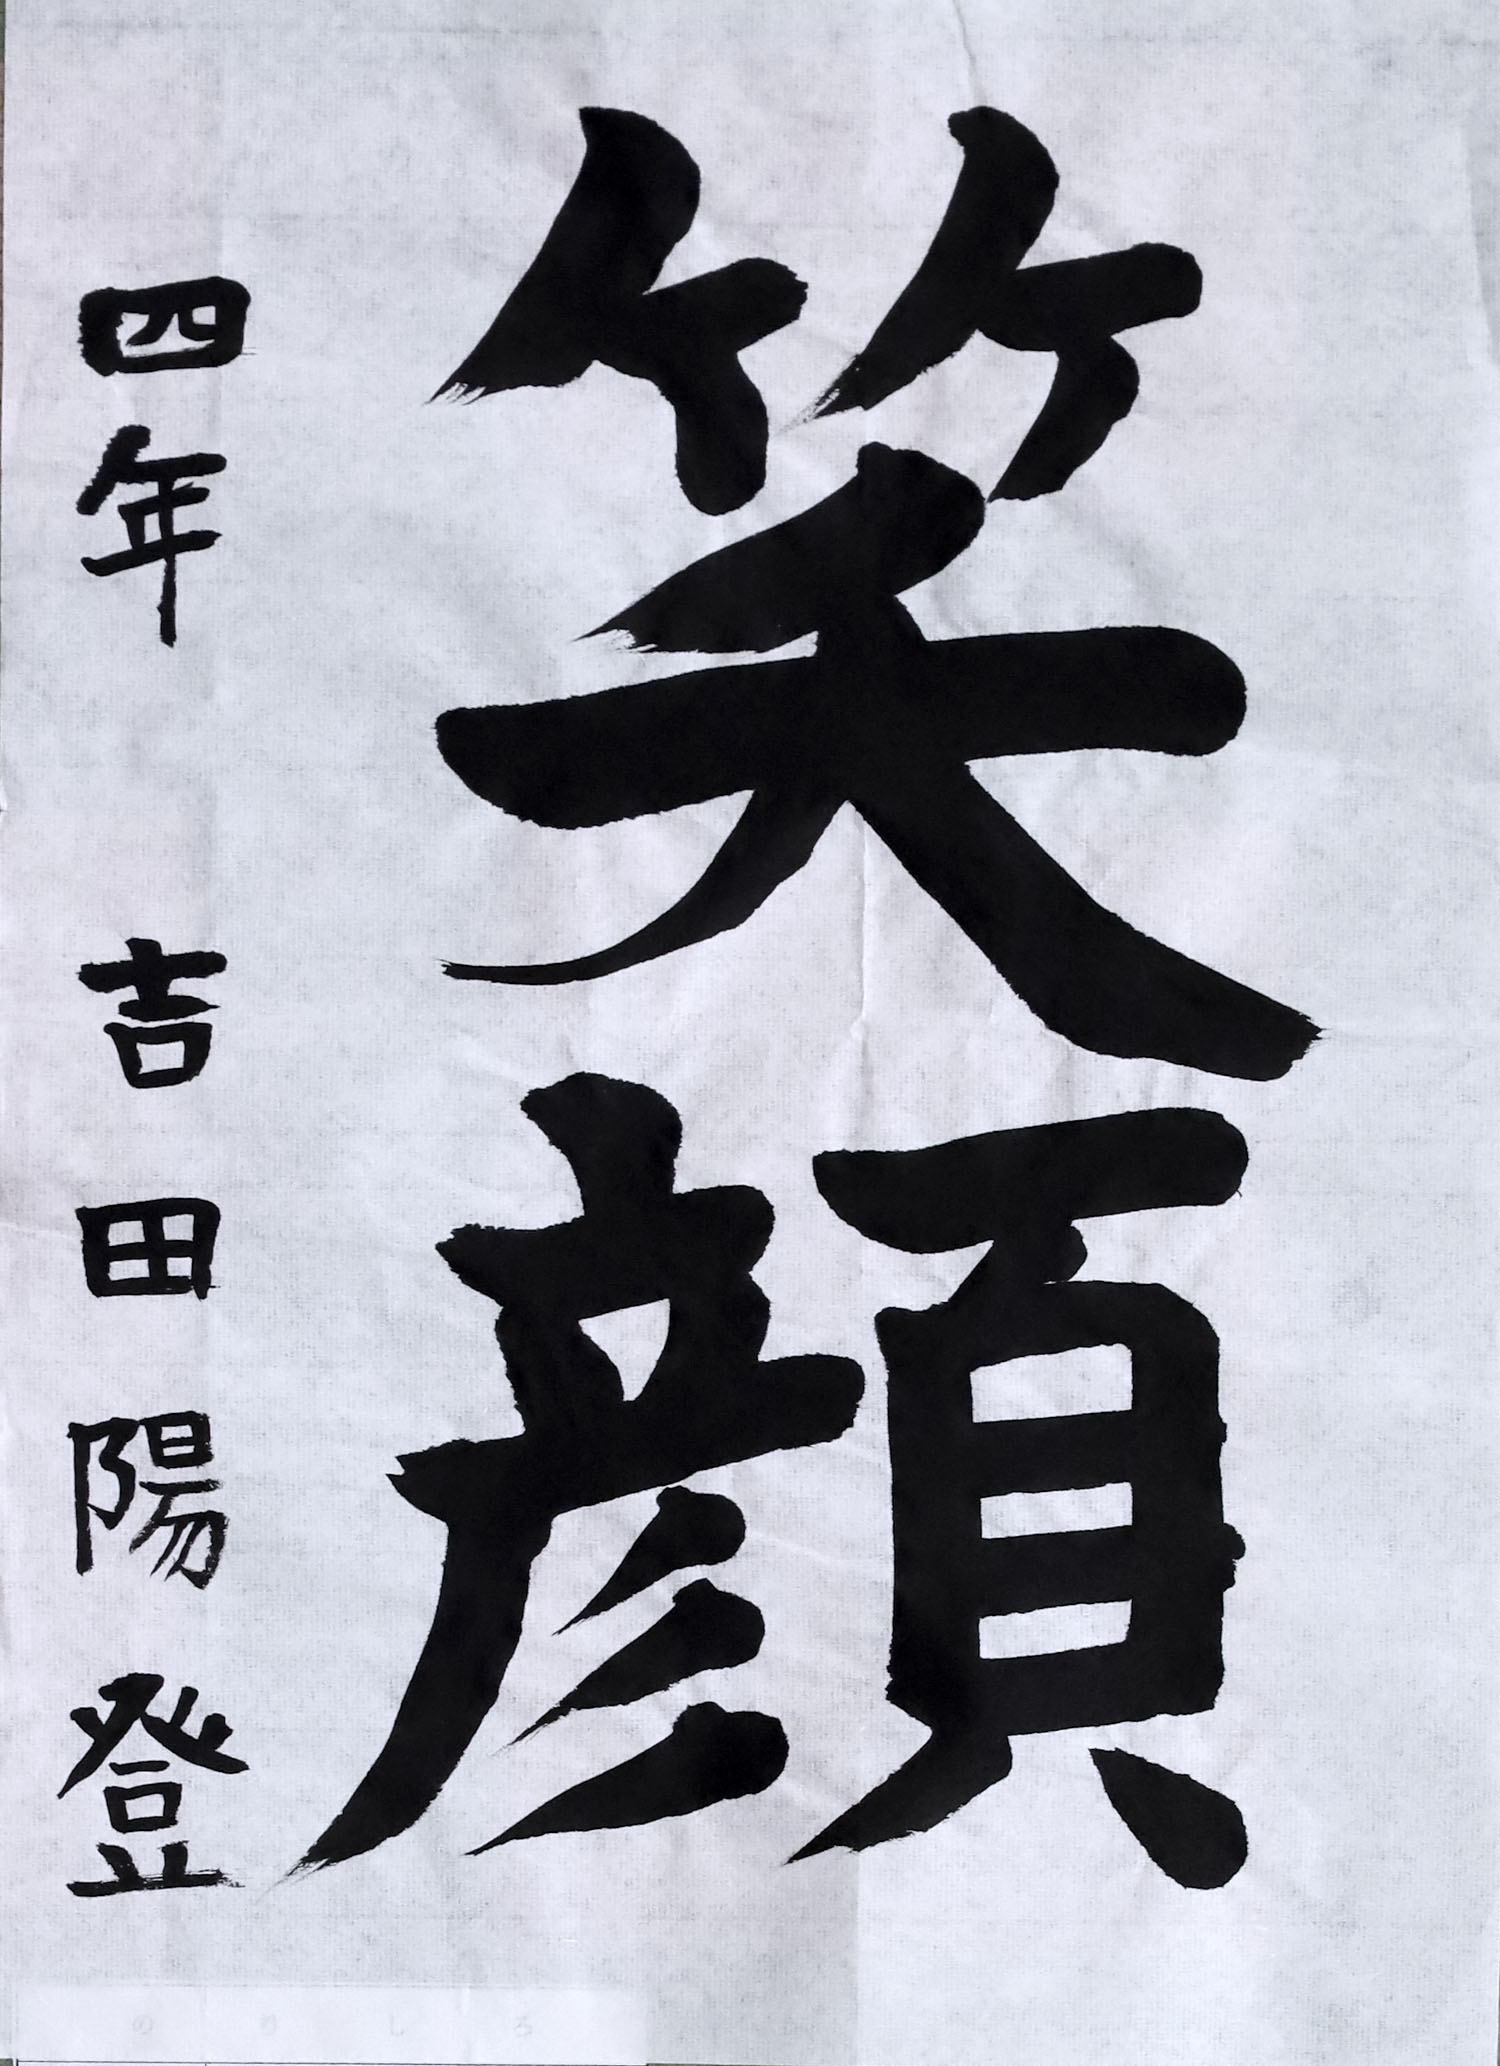 笑顔
四年 吉田陽登
のりしろ